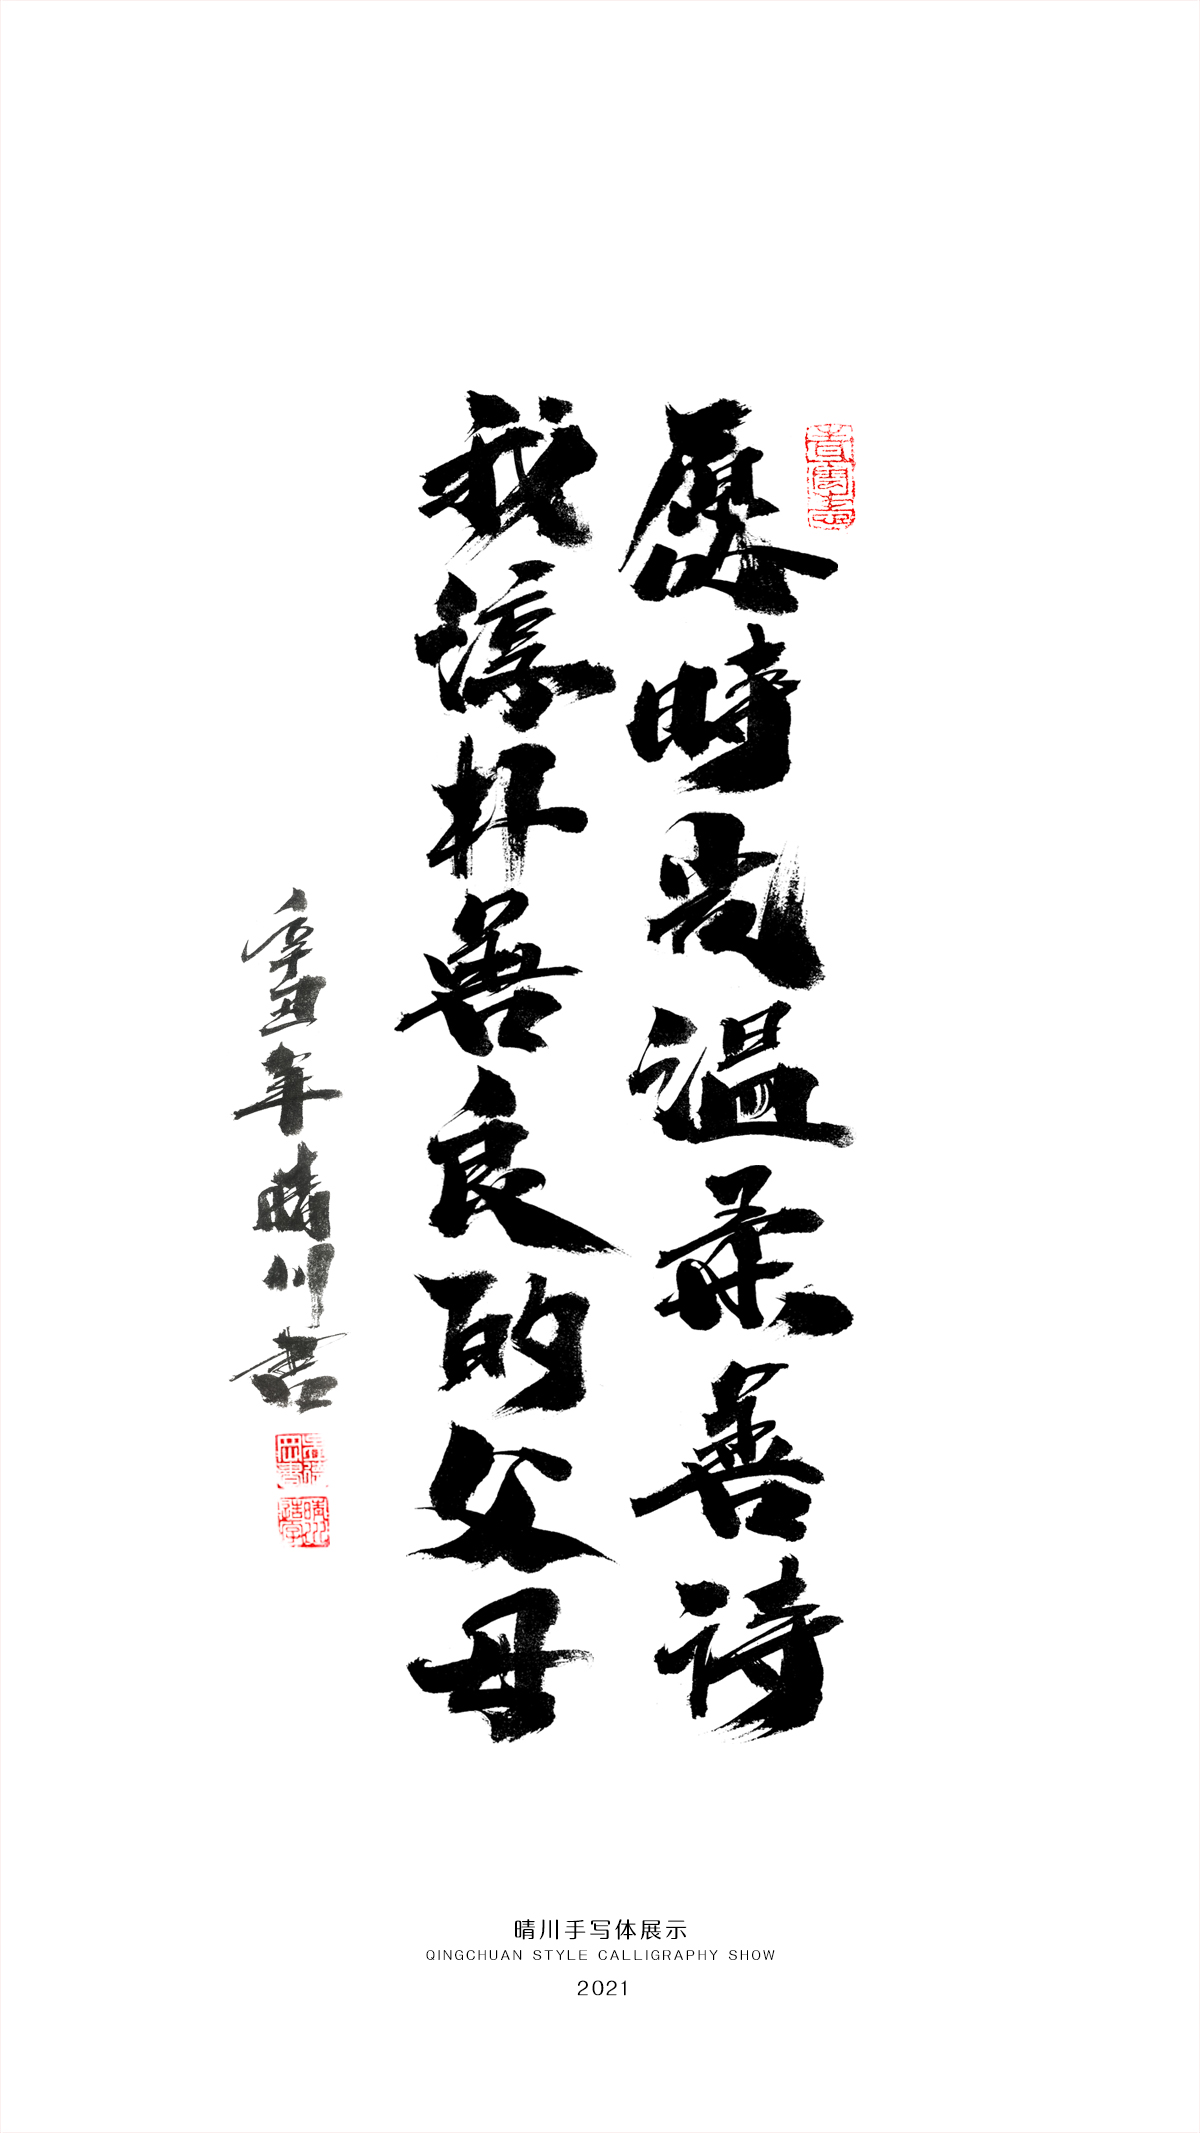 愿時光温柔善待
我淳朴善良的父母
辛丑年晴川書
晴川手写体展示
QINGCHUAN STYLE CALLIGRAPHY SHOW
2021